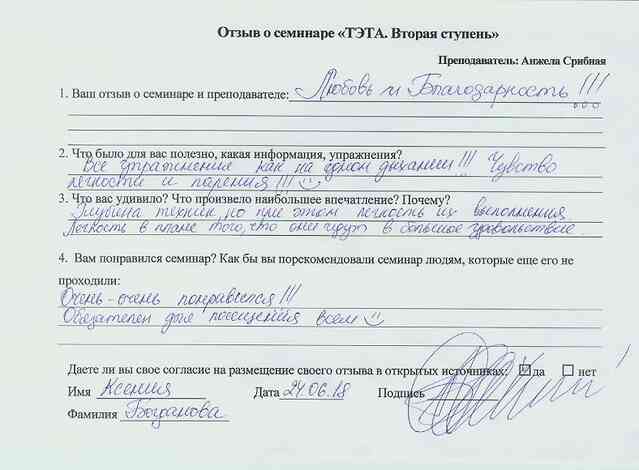 Отзыв о семинаре «ТЭТА. Вторая ступень»
Преподаватель: Анжела Срибная
1. Ваш отзыв о семинаре и преподавателе: Любовь и Благодарность!!!
2. Что было для вас полезно, какая информация, упражнения?
Все упражнения как на одном дыхании!!! Чувство
легкости и парения!!!
3. Что вас удивило? Что произвело наибольшее впечатление? Почему?
Глубина техник, но при этом легкость их выполнения.
Легкость в плане того, что они идут в большое удовольствие.
4. Вам понравился семинар? Как бы вы порекомендовали семинар людям, которые еще его не
проходили:
Очень-очень понравился!!!
Обязателен для посещения всем
Даете ли вы свое согласие на размещение своего отзыва в открытых источниках: да нет
Имя Ксения Дата 24.06.18 Подпись
Фамилия Богданова